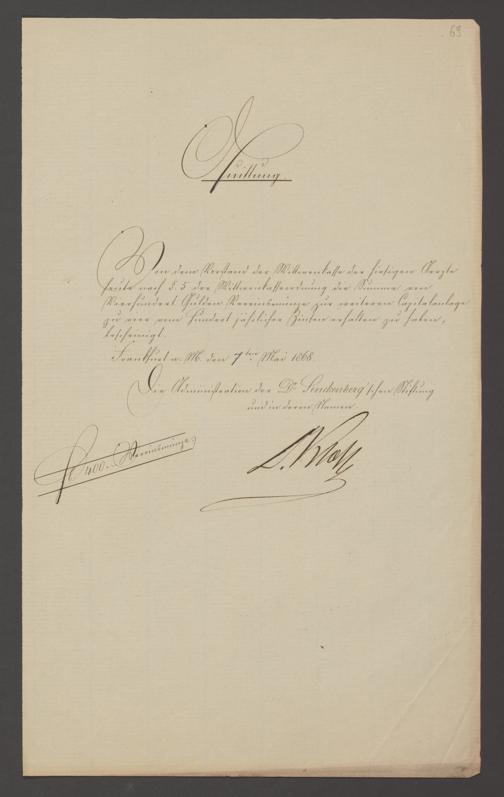 63
Quittung.
Von dem Vorstand der Wittwenkasse der hiesigen Aerzte
heute nach §. 5 der Wittwenkassenordnung die Summe von
Vierhundert Gulden Vereinsmünze zur weiteren Capitalanlage
zu vier vom Hundert jährlicher Zinsen erhalten zu haben,
bescheinigt.
Frankfurt a. M. den 7ten Mai 1868
Die Administration der Dr. Senckenberg'schen Stiftung
und in deren Namen
fl 400. Vereinsmünze